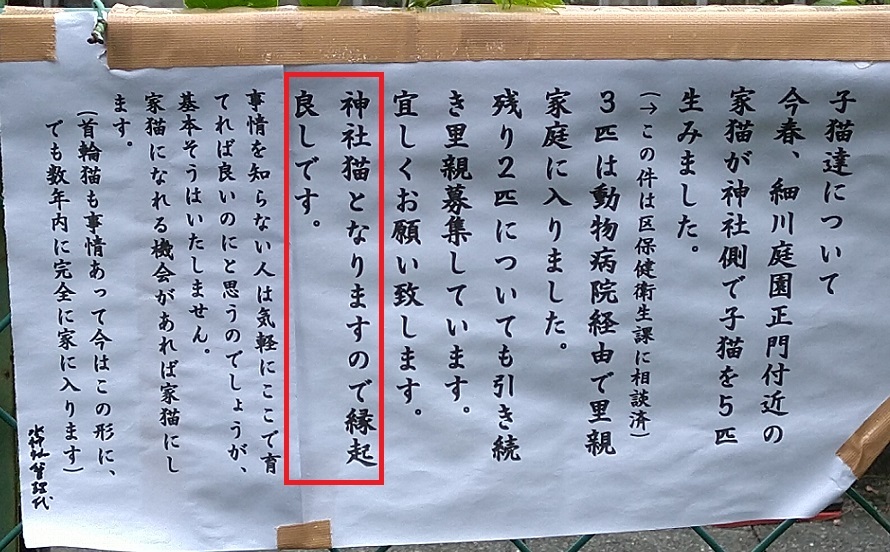 子猫達について
今春、細川庭園正門付近の
家猫が神社側で子猫を5匹
生みました。
(→この件は区保健衛生課に相談済)
3匹は動物病院経由で里親
家庭に入りました。
残り2匹についても引き続
き里親募集しています。
宜しくお願い致します。
神社猫となりますので縁起
良しです。
事情を知らない人は気軽にここで育
てれば良いのにと思うのでしょうが、
基本そうはいたしません。
家猫になれる機会があれば家猫にし
ます。
(首輪猫も事情あって今はこの形に、
でも数年内に完全に家に入ります)
水神社管理代